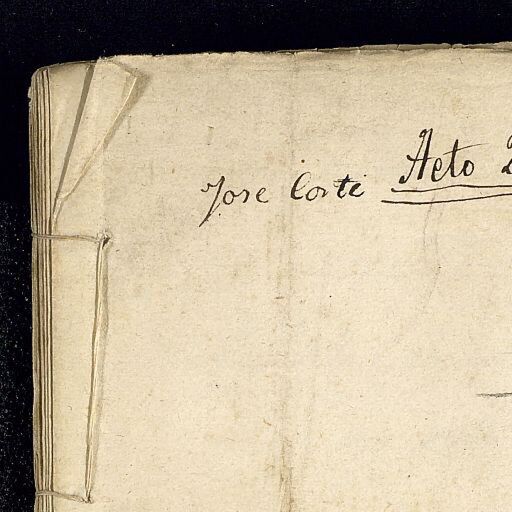 Jose Corte Acto 2